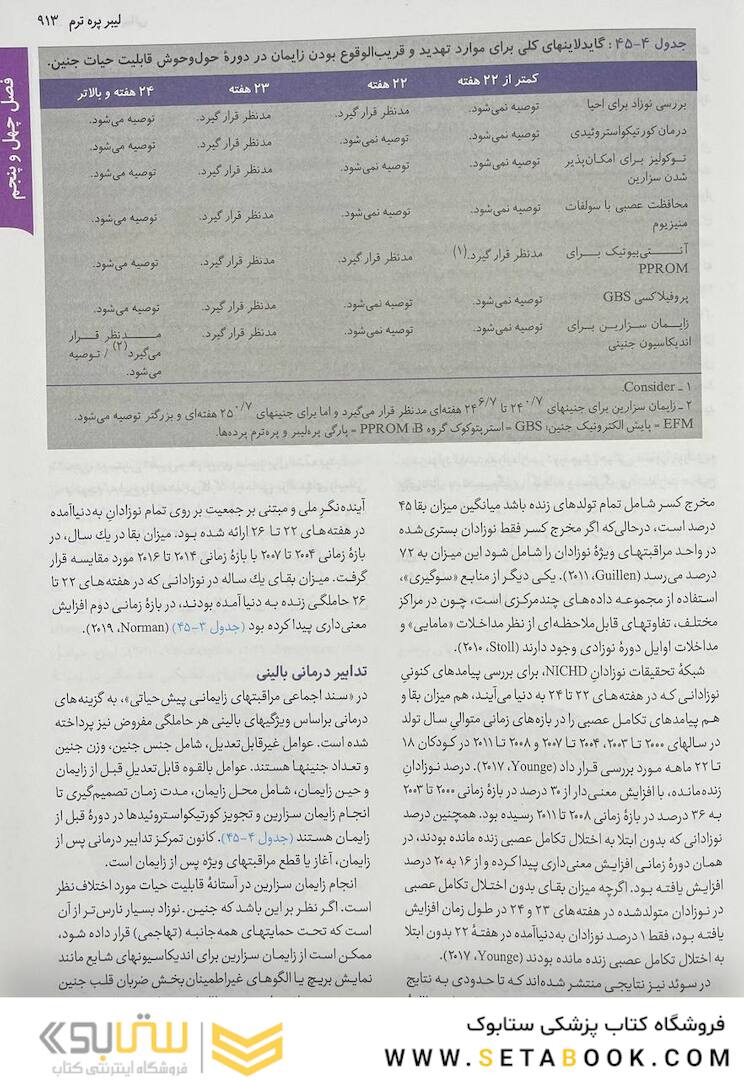 لیبر پره ترم ۹۱۳
فصل چهل و پنجم
جدول ۴-۴۵: گایدلاینهای کلی برای موارد تهدید و قریب‌الوقوع بودن زایمان در دورهٔ حول‌وحوش قابلیت حیات جنین.
کمتر از ۲۲ هفته ۲۲ هفته ۲۳ هفته ۲۴ هفته و بالاتر
بررسی نوزاد برای احیا توصیه نمی‌شود. مدنظر قرار گیرد. مدنظر قرار گیرد. توصیه می‌شود.
درمان کورتیکواستروئیدی توصیه نمی‌شود. توصیه نمی‌شود. مدنظر قرار گیرد. توصیه می‌شود.
توکولیز برای امکان‌پذیر توصیه نمی‌شود. توصیه نمی‌شود. مدنظر قرار گیرد. توصیه می‌شود.
شدن سزارین
محافظت عصبی با سولفات توصیه نمی‌شود. توصیه نمی‌شود. مدنظر قرار گیرد. توصیه می‌شود.
منیزیوم
آنتی‌بیوتیک برای مدنظر قرار گیرد.(۱) مدنظر قرار گیرد. مدنظر قرار گیرد. توصیه می‌شود.
PPROM
پروفیلاکسی GBS توصیه نمی‌شود. توصیه نمی‌شود. مدنظر قرار گیرد. توصیه می‌شود.
زایمان سزارین برای توصیه نمی‌شود. توصیه نمی‌شود. مدنظر قرار گیرد. مدنظر قرار
اندیکاسیون جنینی می‌گیرد(۲) / توصیه
می‌شود.
۱ ـ Consider.
۲ ـ زایمان سزارین برای جنینهای ۲۴ ۰/۷ تا ۲۴ ۶/۷ هفته‌ای مدنظر قرار می‌گیرد و اما برای جنینهای ۲۵ ۰/۷ هفته‌ای و بزرگتر توصیه می‌شود.
EFM = پایش الکترونیک جنین؛ GBS = استرپتوکوک گروه B؛ PPROM = پارگی پره‌لیبر و پره‌ترم پرده‌ها.
مخرج کسر شامل تمام تولدهای زنده باشد میانگین میزان بقا ۴۵
درصد است، درحالی‌که اگر مخرج کسر فقط نوزادان بستری‌شده
در واحد مراقبتهای ویژهٔ نوزادان را شامل شود این میزان به ۷۲
درصد می‌رسد (Guillen، ۲۰۱۱). یکی دیگر از منابع «سوگیری»،
استفاده از مجموعه داده‌های چندمرکزی است، چون در مراکز
مختلف، تفاوتهای قابل‌ملاحظه‌ای از نظر مداخلات «مامایی» و
مداخلات اوایل دورهٔ نوزادی وجود دارند (Stoll، ۲۰۱۰).
شبکهٔ تحقیقات نوزادانِ NICHD، برای بررسی پیامدهای کنونیِ
نوزادانی که در هفته‌های ۲۲ تا ۲۴ به دنیا می‌آیند، هم میزان بقا و
هم پیامدهای تکامل عصبی را در بازه‌های زمانی متوالیِ سال تولد
در سالهای ۲۰۰۰ تا ۲۰۰۳، ۲۰۰۴ تا ۲۰۰۷ و ۲۰۰۸ تا ۲۰۱۱ در کودکان ۱۸
تا ۲۲ ماهه مورد بررسی قرار داد (Younge، ۲۰۱۷). درصد نوزادانِ
زنده‌مانده، با افزایش معنی‌دار از ۳۰ درصد در بازهٔ زمانی ۲۰۰۰ تا ۲۰۰۳
به ۳۶ درصد در بازهٔ زمانی ۲۰۰۸ تا ۲۰۱۱ رسیده بود. همچنین درصد
نوزادانی که بدون ابتلا به اختلال تکامل عصبی زنده مانده بودند، در
همان دورهٔ زمانی افزایش معنی‌داری پیدا کرده و از ۱۶ به ۲۰ درصد
افزایش یافته بود. اگرچه میزان بقای بدون اختلال تکامل عصبی
در نوزادان متولدشده در هفته‌های ۲۳ و ۲۴ در طول زمان افزایش
یافته بود، فقط ۱ درصد نوزادان به‌دنیاآمده در هفتهٔ ۲۲ بدون ابتلا
به اختلال تکامل عصبی زنده مانده بودند (Younge، ۲۰۱۷).
در سوئد نیز نتایجی منتشر شده‌اند که تا حدودی به نتایج
آینده‌نگر ملی و مبتنی بر جمعیت بر روی تمام نوزادانِ به‌دنیاآمده
در هفته‌های ۲۲ تا ۲۶ ارائه شده بود. میزان بقا در یك سال، در
بازهٔ زمانی ۲۰۰۴ تا ۲۰۰۷ با بازهٔ زمانی ۲۰۱۴ تا ۲۰۱۶ مورد مقایسه قرار
گرفت. میزان بقای یك ساله در نوزادانی که در هفته‌های ۲۲ تا
۲۶ حاملگی زنده به دنیا آمده بودند، در بازهٔ زمانی دوم افزایش
معنی‌داری پیدا کرده بود (جدول ۳-۴۵) (Norman، ۲۰۱۹).
تدابیر درمانی بالینی
در «سند اجماعی مراقبتهای زایمانی پیش‌حیاتی»، به گزینه‌های
درمانی براساس ویژگیهای بالینی هر حاملگی مفروض نیز پرداخته
شده است. عوامل غیرقابل‌تعدیل، شامل جنس جنین، وزن جنین
و تعداد جنینها هستند. عوامل بالقوه قابل‌تعدیلِ قبل از زایمان
و حین زایمان، شامل محل زایمان، مدت زمان تصمیم‌گیری تا
انجام زایمان سزارین و تجویز کورتیکواستروئیدها در دورهٔ قبل از
زایمان هستند (جدول ۴-۴۵). کانون تمرکز تدابیر درمانی پس از
زایمان، آغاز یا قطع مراقبتهای ویژه پس از زایمان است.
انجام زایمان سزارین در آستانهٔ قابلیت حیات مورد اختلاف‌نظر
است. اگر نظر بر این باشد که جنین ـ نوزاد بسیار نارس‌تر از آن
است که تحت حمایتهای همه‌جانبه (تهاجمی) قرار داده شود،
ممکن است از زایمان سزارین برای اندیکاسیونهای شایع مانند
نمایش بریچ یا الگوهای غیراطمینان‌بخش ضربان قلب جنین
فروشگاه کتاب پزشکی ستابوک
WWW.SETABOOK.COM
ستابوک
فروشگاه اینترنتی کتاب